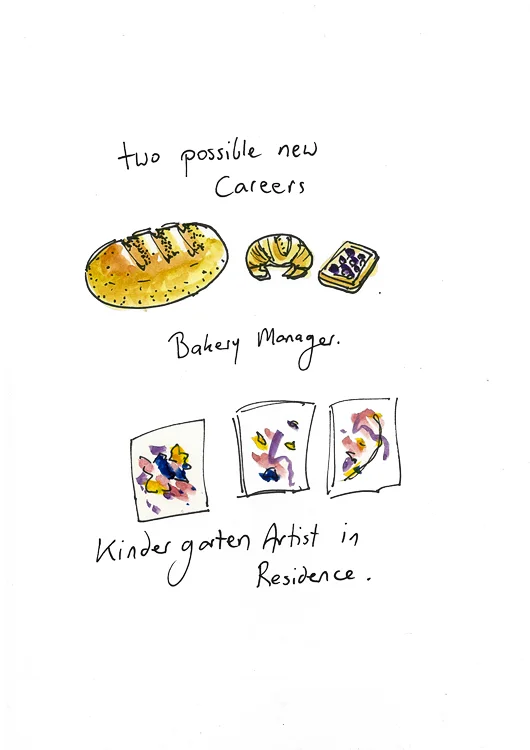 two possible new
Careers
Bakery Manager.
Kindergarten Artist in
Residence.